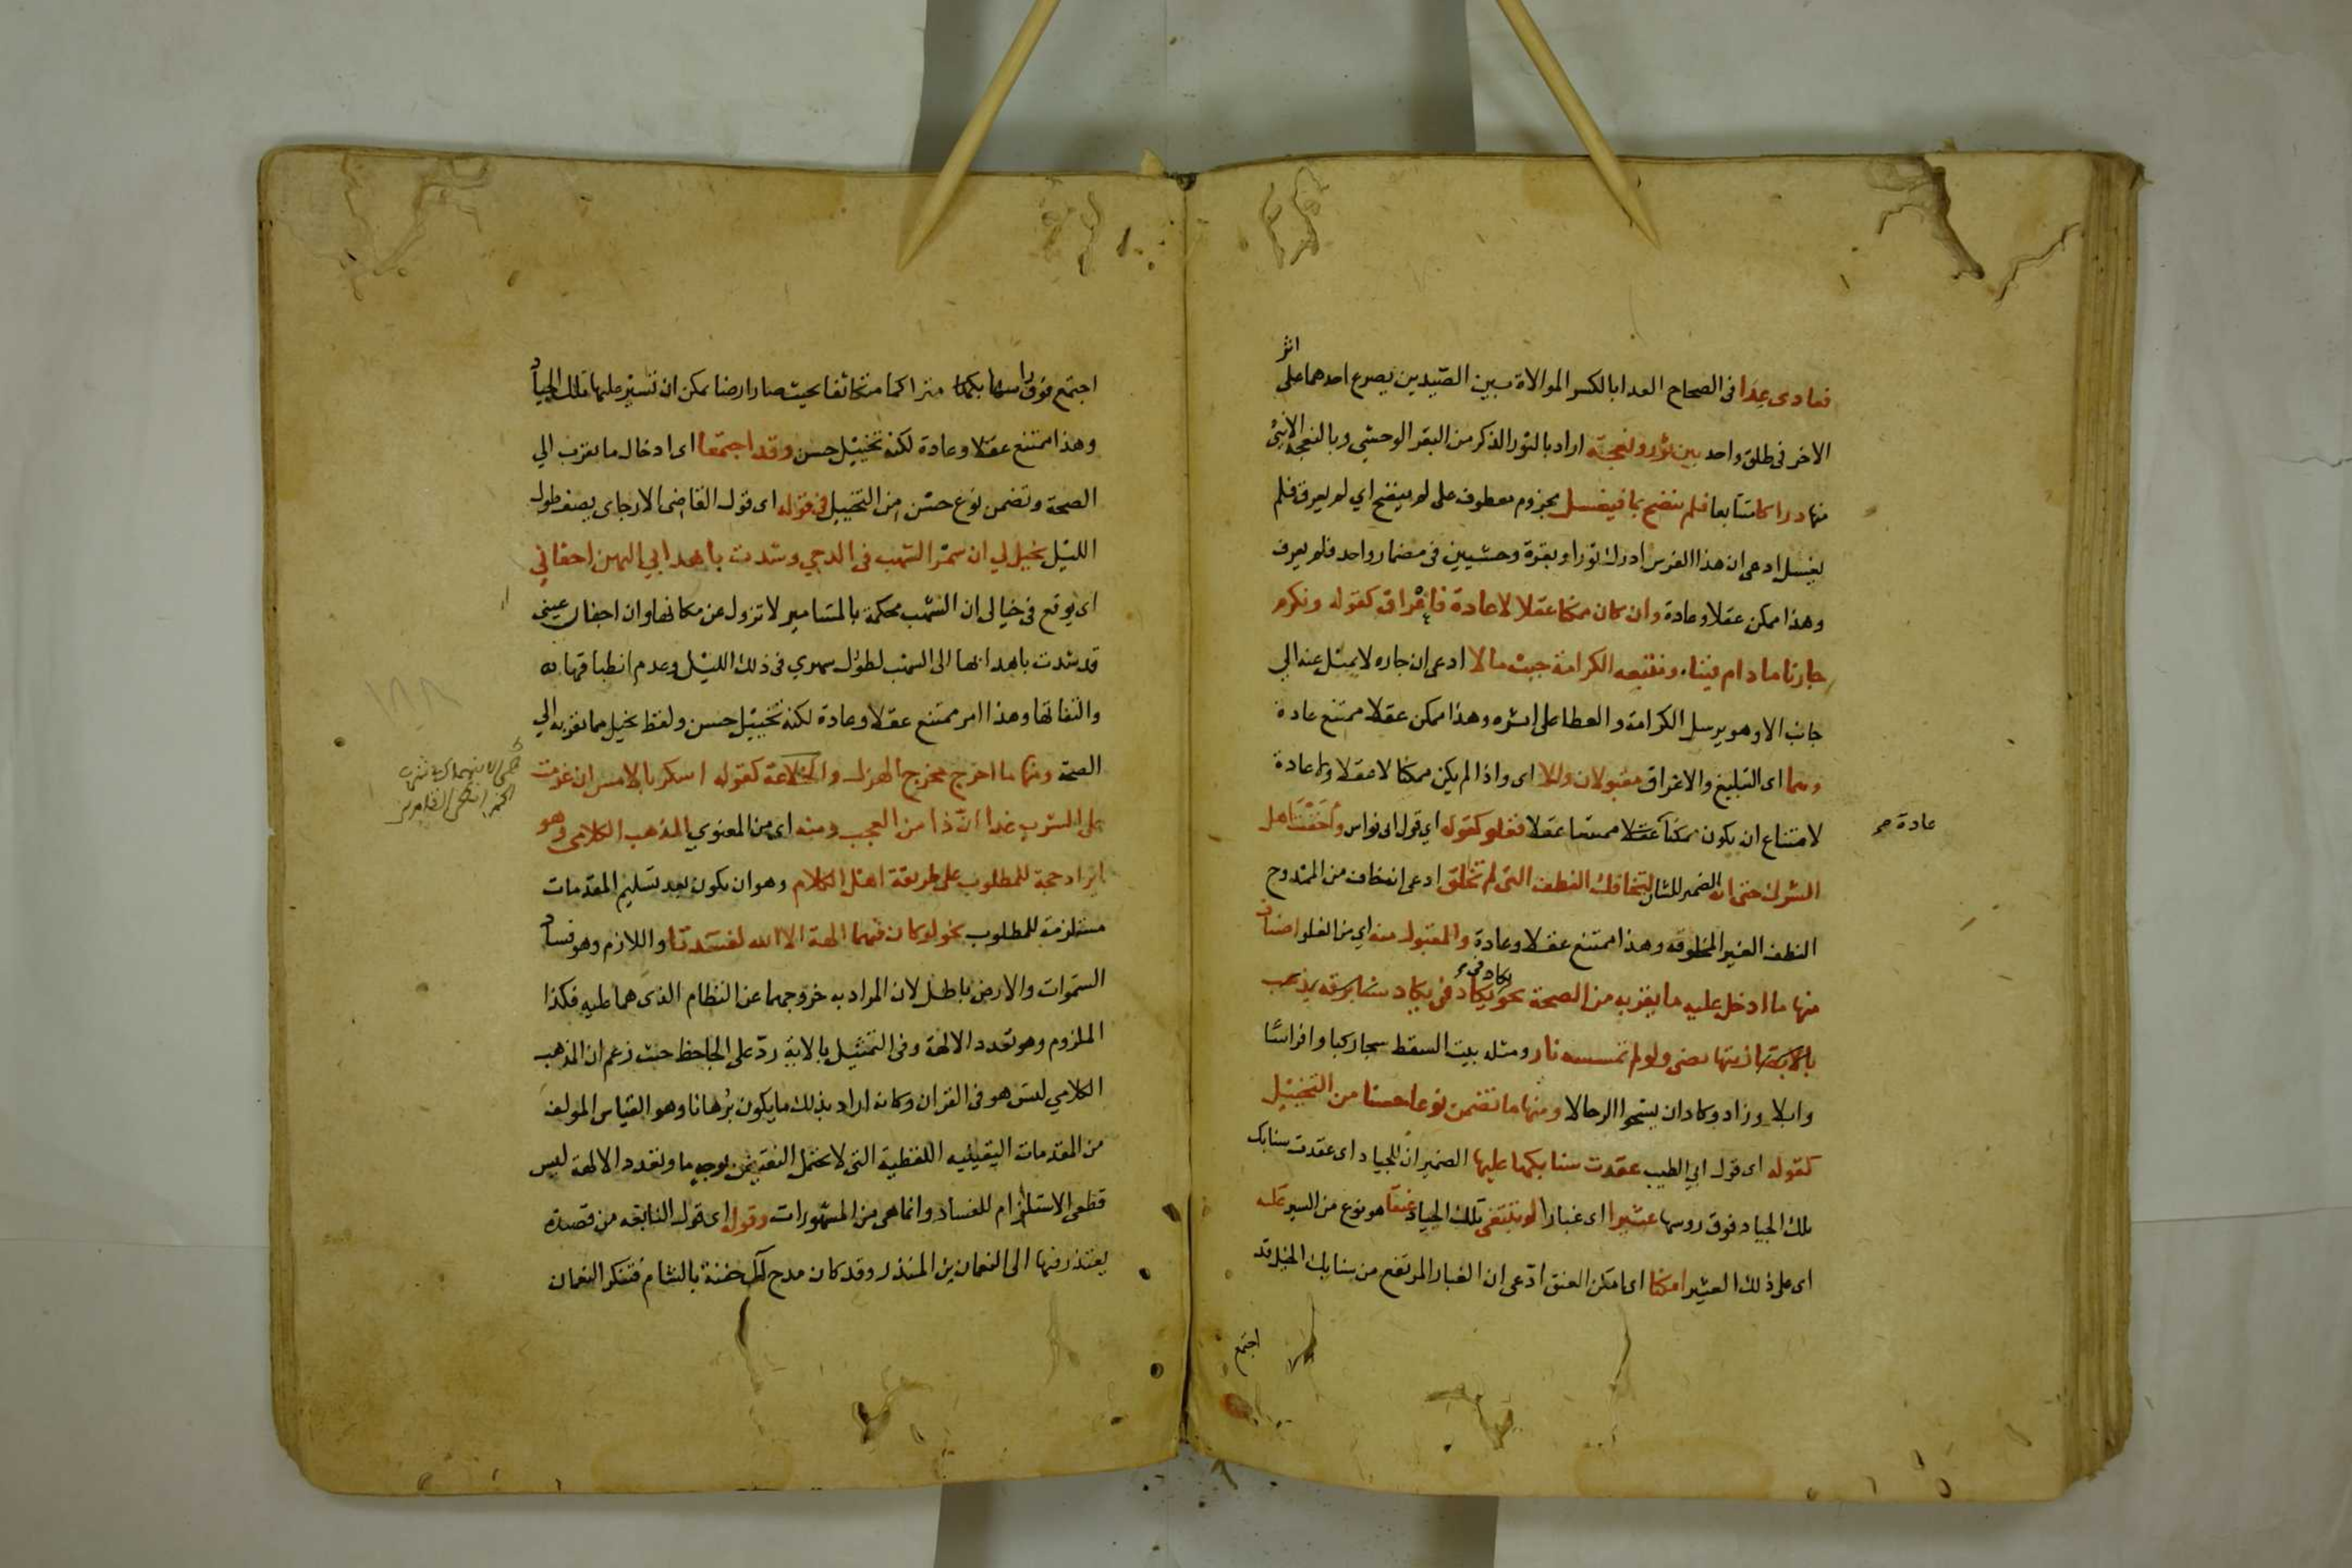 فعادى عدا فى الصحاح العدا بالكسر الموالاة بين الصيدين يصرع احدهما على اثر
الاخر فى طلق واحد بين ثور ونعجة اراد بالثور الذكر من البقر الوحشي وبالنعجة الانثى
منها دراكا متتابعا فلم ينضح بما فيغسل مجزوم معطوف على لم ينضح اي لم يعرق فلم
يغسل ادعى ان هذا الفرس ادرك ثورا وبقرة وحشيين فى مضمار واحد فلم يعرق
وهذا ممكن عقلا وعادة وان كان ممكنا عقلا لا عادة فاغراق كقوله ونكرم
جارنا مادام فينا ونتبعه الكرامة حيث مالا ادعى ان جاره لا يميل عنه الي
جانب الا وهو يرسل الكرامة والعطا على اثره وهذا ممكن عقلا ممتنع عادة
وهما اى التبليغ والاغراق مقبولان والا اى واذا لم يكن ممكنا لا عقلا ولا عادة
لامتناع ان يكون ممكنا عادة ممتنعا عقلا فغلو كقوله اي قول ابى نواس واخفت اهل
عادة صح
الشرك حتى انه الضمير للشان لتخافك النطف التى لم تخلق ادعى انه خاف من الممدوح
النطف الغير المخلوقه وهذا ممتنع عقلا وعادة والمقبول منه اي من الغلو اصناف
منها ما ادخل عليه ما يقربه من الصحة نحو يكاد فى يكاد سنا برقه يذهب
بالابصار زيتها يضى ولو لم تمسسه نار ومثله بيت السقط شجا ركبا وافراسًا
وابلا وزاد وكاد ان يشجوا الرحالا ومنها ما تضمن نوعا حسنا من التخييل
كقوله اى قول ابي الطيب عقدت سنابكها عليها الضمير ان للجياد اى عقدت سنابك
تلك الجياد فوق روسها عثيرا اى غبارا لو تبتغى تلك الجياد عنقا هو نوع من السير عليه
اى على ذلك العثير امكنا اى امكن العنق ادعى ان الغبار المرتفع من سنابك الخيل قد
اجتمع
اجتمع فوق راسها متراكما متكاثفا بحيث صار ارضا يمكن ان تسير عليها تلك الجياد
وهذا ممتنع عقلا وعادة لكنه تخييل حسن وقد اجتمعا اى ادخال ما يقرب الي
الصحة وتضمن نوع حسن من التخييل فى قوله اى قول القاضى الارجاى يصف طول
الليل يخيل لي ان سمر الشهب فى الدجي وشدت باهدابي اليهن اجفاني
اى يوقع فى خيالى ان الشهب محكمة بالمسامير لا تزول عن مكانها وان اجفان عينى
قد شدت باهدابها الى الشهب لطول سهري فى ذلك الليل وعدم انطباقها
والتقائها وهذا امر ممتنع عقلا وعادة لكنه تخييل حسن ولفظ يخيل مما يقربه الي
الصحة ومنها ما اخرج مخرج الهزل والخلاعة كقوله اسكر بالامس ان عزمت
على الشرب غدا ان ذا من العجب ومنه اى من المعنوي المذهب الكلامى وهو
ايراد حجة للمطلوب على طريقة اهل الكلام وهو ان يكون بعد تسليم المقدمات
مستلزمة للمطلوب نحو لو كان فيهما الهة الا الله لفسدتا واللازم وهو فساد
السموات والارض باطل لان المراد به خروجهما عن النظام الذى هما عليه فكذا
الملزوم وهو تعدد الالهة وفى التمثيل بالاية ردّ على الجاحظ حيث زعم ان المذهب
الكلامي ليس هو فى القران وكانه اراد بذلك ما يكون برهانا وهو القياس المولف
من المقدمات اليقينيه القطعية التى لا تحتمل النقيض بوجه ما وتعدد الالهة ليس
قطعى الاستلزام للفساد وانما هى من المشهورات وقوله اى قول النابغه من قصيدة
يعتذر فيها الى النعمان بن المنذر وقد كان مدح آل جفنة بالشام فتنكر النعمان